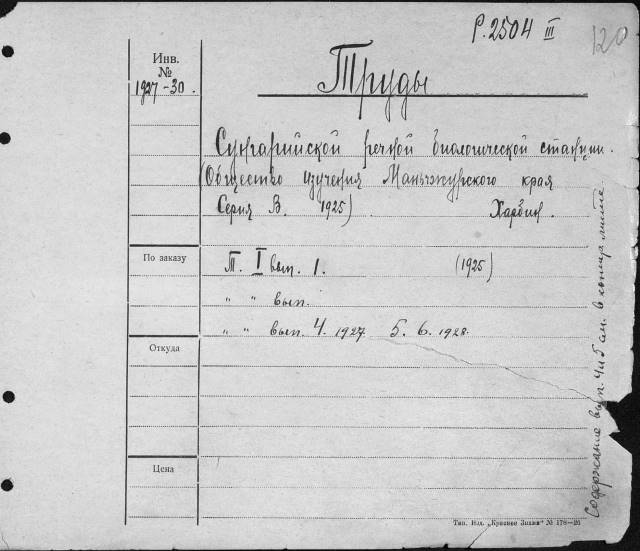 Р. 2504 III
120
Инв.
№
1927-30.
Труды
Сунгарийской речной биологической станции.
(Общество изучения Маньчжурского края
Серия В. 1925) Харбин.
По заказу
Т. I вып. 1. (1925)
" " вып.
" " вып. 4. 1927 5. 6. 1928.
Откуда
Цена
Содержание вып. 4 и 5 см. в конце
Тип. Изд. „Красное Знамя" № 178—26